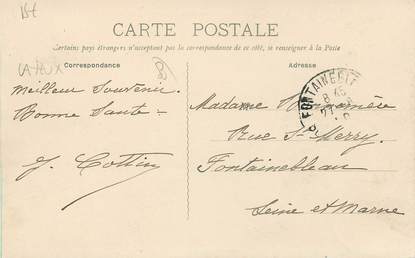 CARTE POSTALE
Certains pays étrangers n'acceptant pas la correspondance de ce côté, se renseigner à la Poste
Correspondance
Adresse
Meilleur Souvenir
Bonne Santé =
J. Cottin
Madame
Rue St Merry
Fontainebleau
Seine et Marne
FONTAINEBLEAU